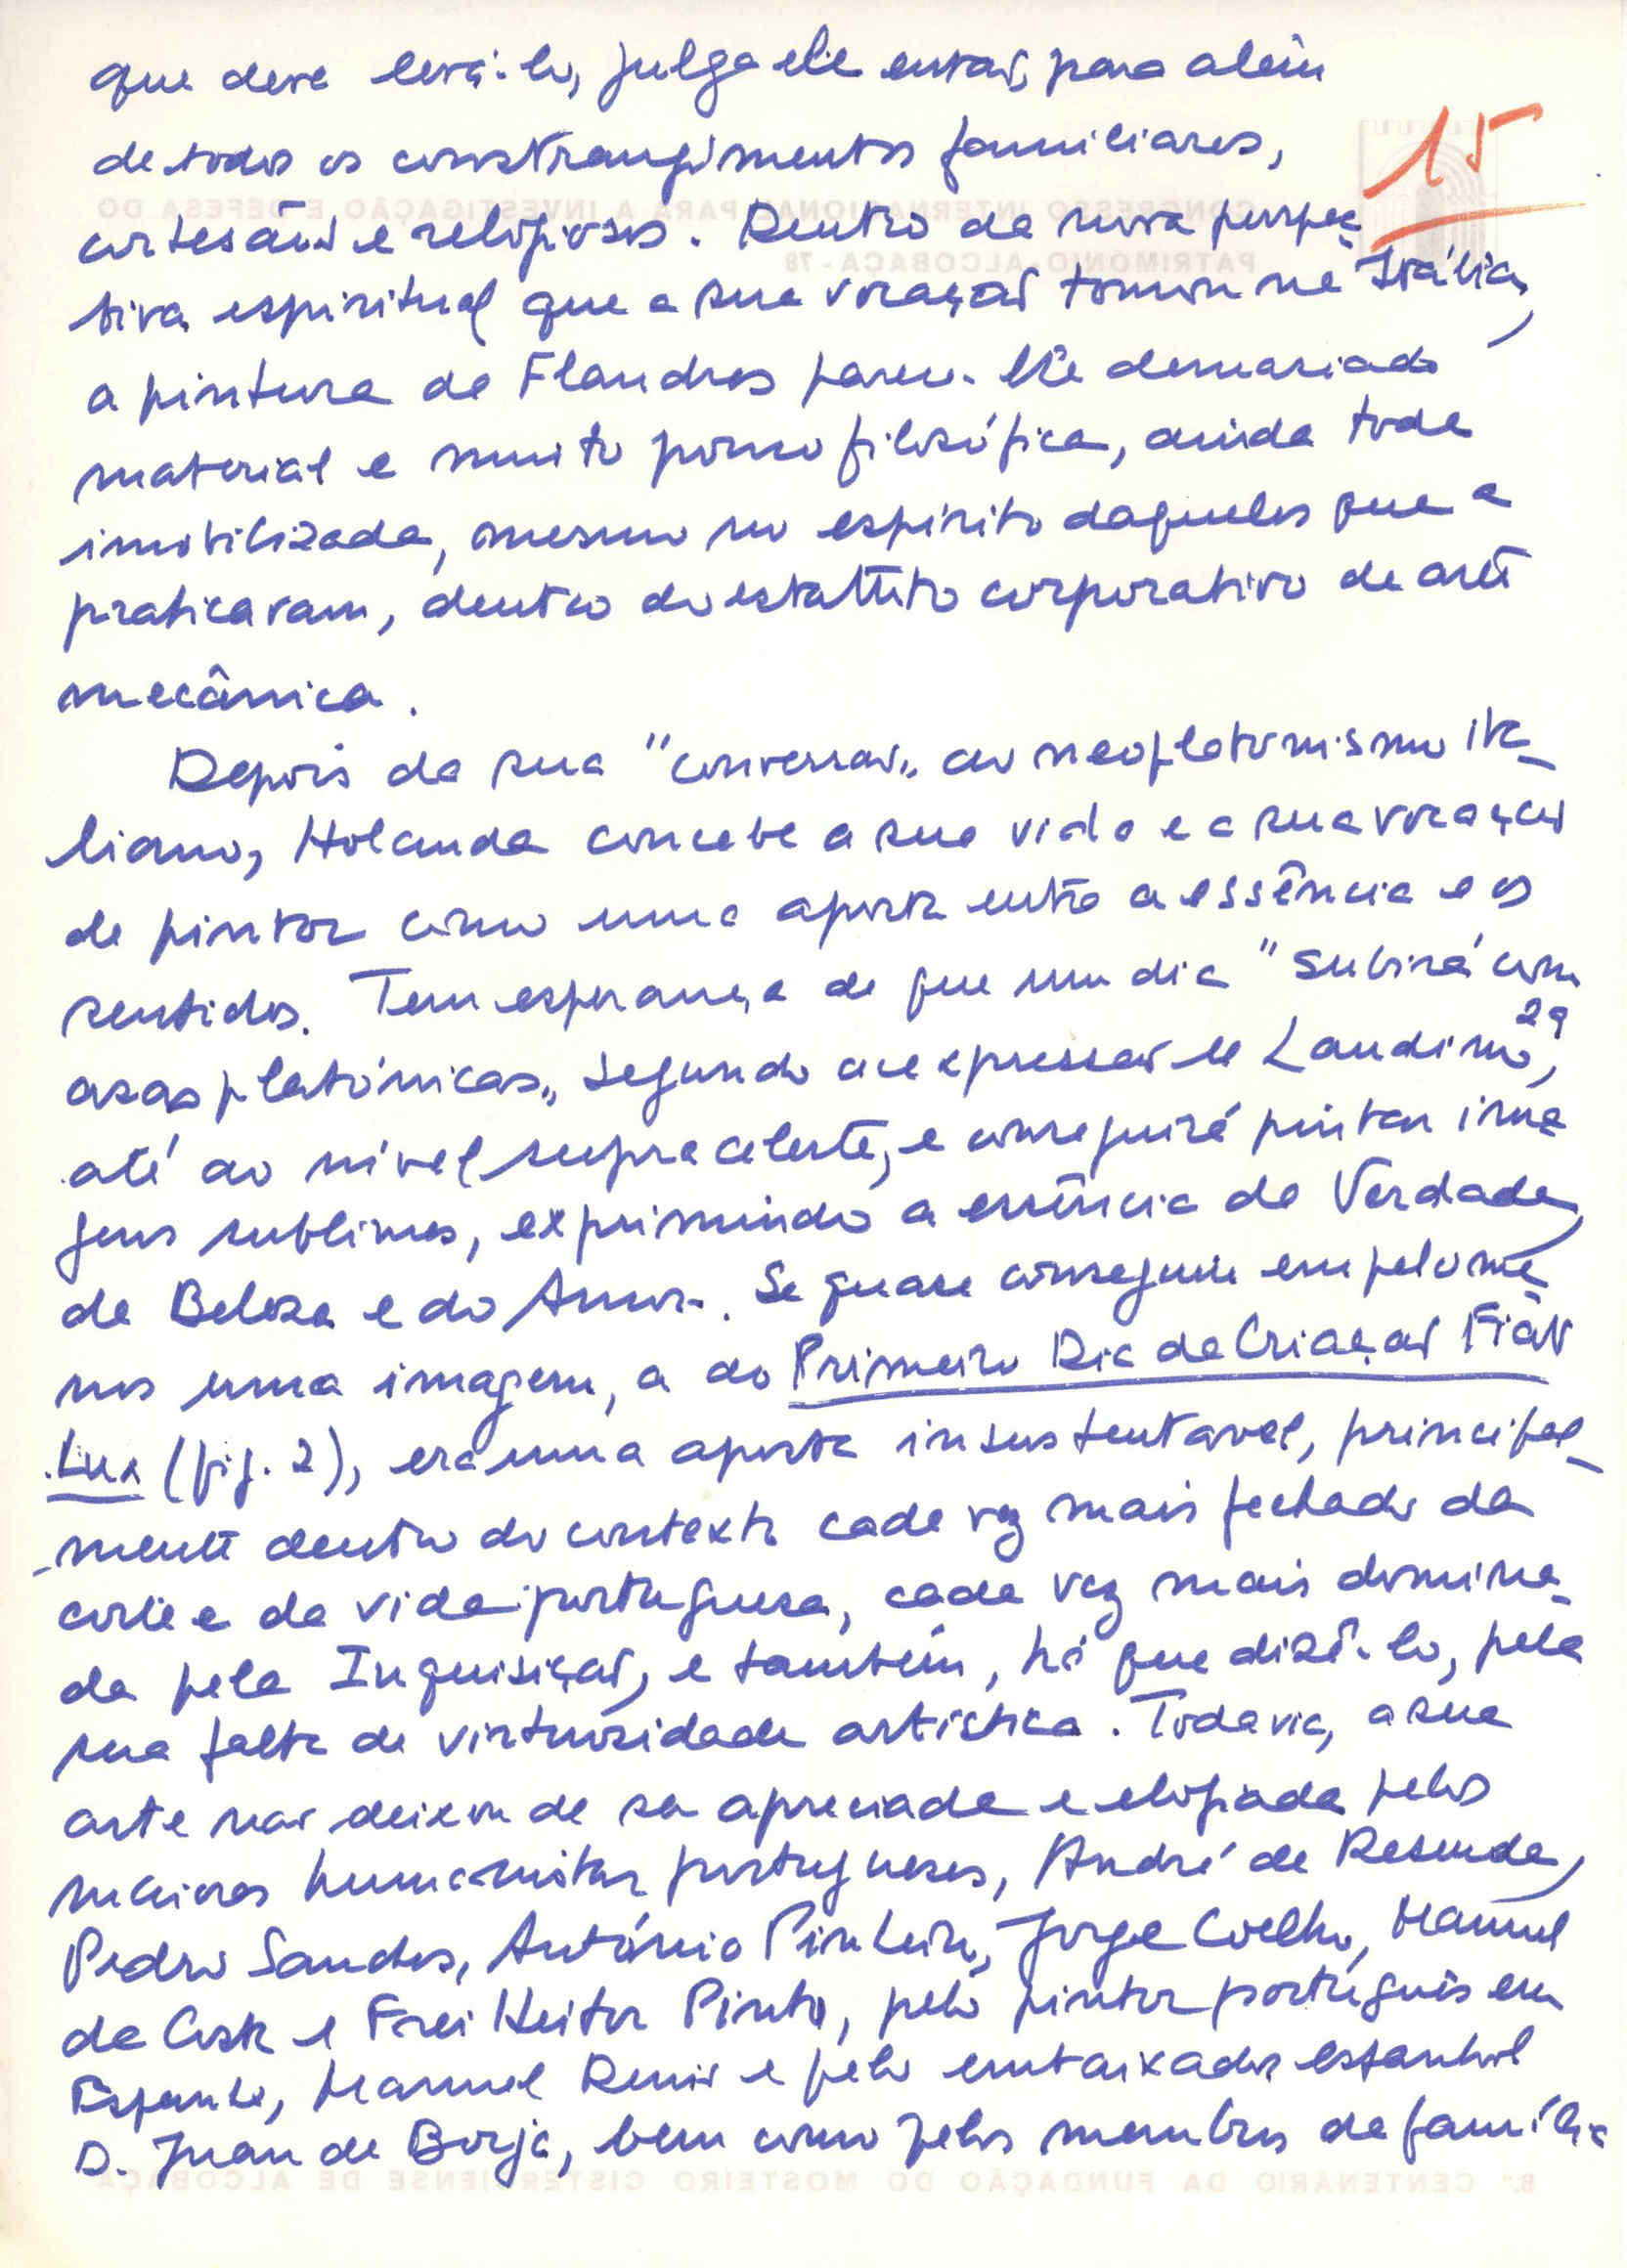 que deve levá-lo, julga ele então, para além
15
de todos os constrangimentos familiares,
CONGRESSO INTERNACIONAL PARA A INVESTIGAÇÃO E DEFESA DO
cortesãos e religiosos. Dentro da nova perspec
PATRIMÓNIO-ALCOBAÇA-78
tiva espiritual que a sua vocação tomou na Itália,
a pintura da Flandres pareceu-lhe demasiado
material e muito pouco filosófica, ainda toda
imobilizada, mesmo no espírito daqueles que a
praticavam, dentro do estatuto corporativo de arte
mecânica.
Depois da sua "conversão" ao neoplatonismo ita-
liano, Holanda concebe a sua vida e a sua vocação
de pintor como uma aposta entre a essência e os
sentidos. Tem esperança de que um dia "subirá com
asas platónicas" segundo a expressão de Landino 29,
até ao nível supraceleste, e conseguirá pintar ima
gens sublimes, exprimindo a essência da Verdade,
da Beleza e do Amor. Se quase conseguiu em pelo me
nos uma imagem, a do Primeiro Dia da Criação Fiat
Lux (fig. 2), era uma aposta insustentavel, principal-
-mente dentro do contexto cada vez mais fechado da
corte e da vida portuguesa, cada vez mais domina-
da pela Inquisição, e também, há que dizê-lo, pela
sua falta de virtuosidade artística. Todavia, a sua
arte não deixou de ser apreciada e elogiada pelos
maiores humanistas portugueses, André de Resende,
Pedro Sanches, António Pinheiro, Jorge Coelho, Manuel
da Costa e Frei Heitor Pinto, pelo pintor português em
Espanha, Manuel Denis e pelo embaixador espanhol
D. Juan de Borja, bem como pelos membros da família
8.º CENTENÁRIO DA FUNDAÇÃO DO MOSTEIRO CISTERCIENSE DE ALCOBAÇA